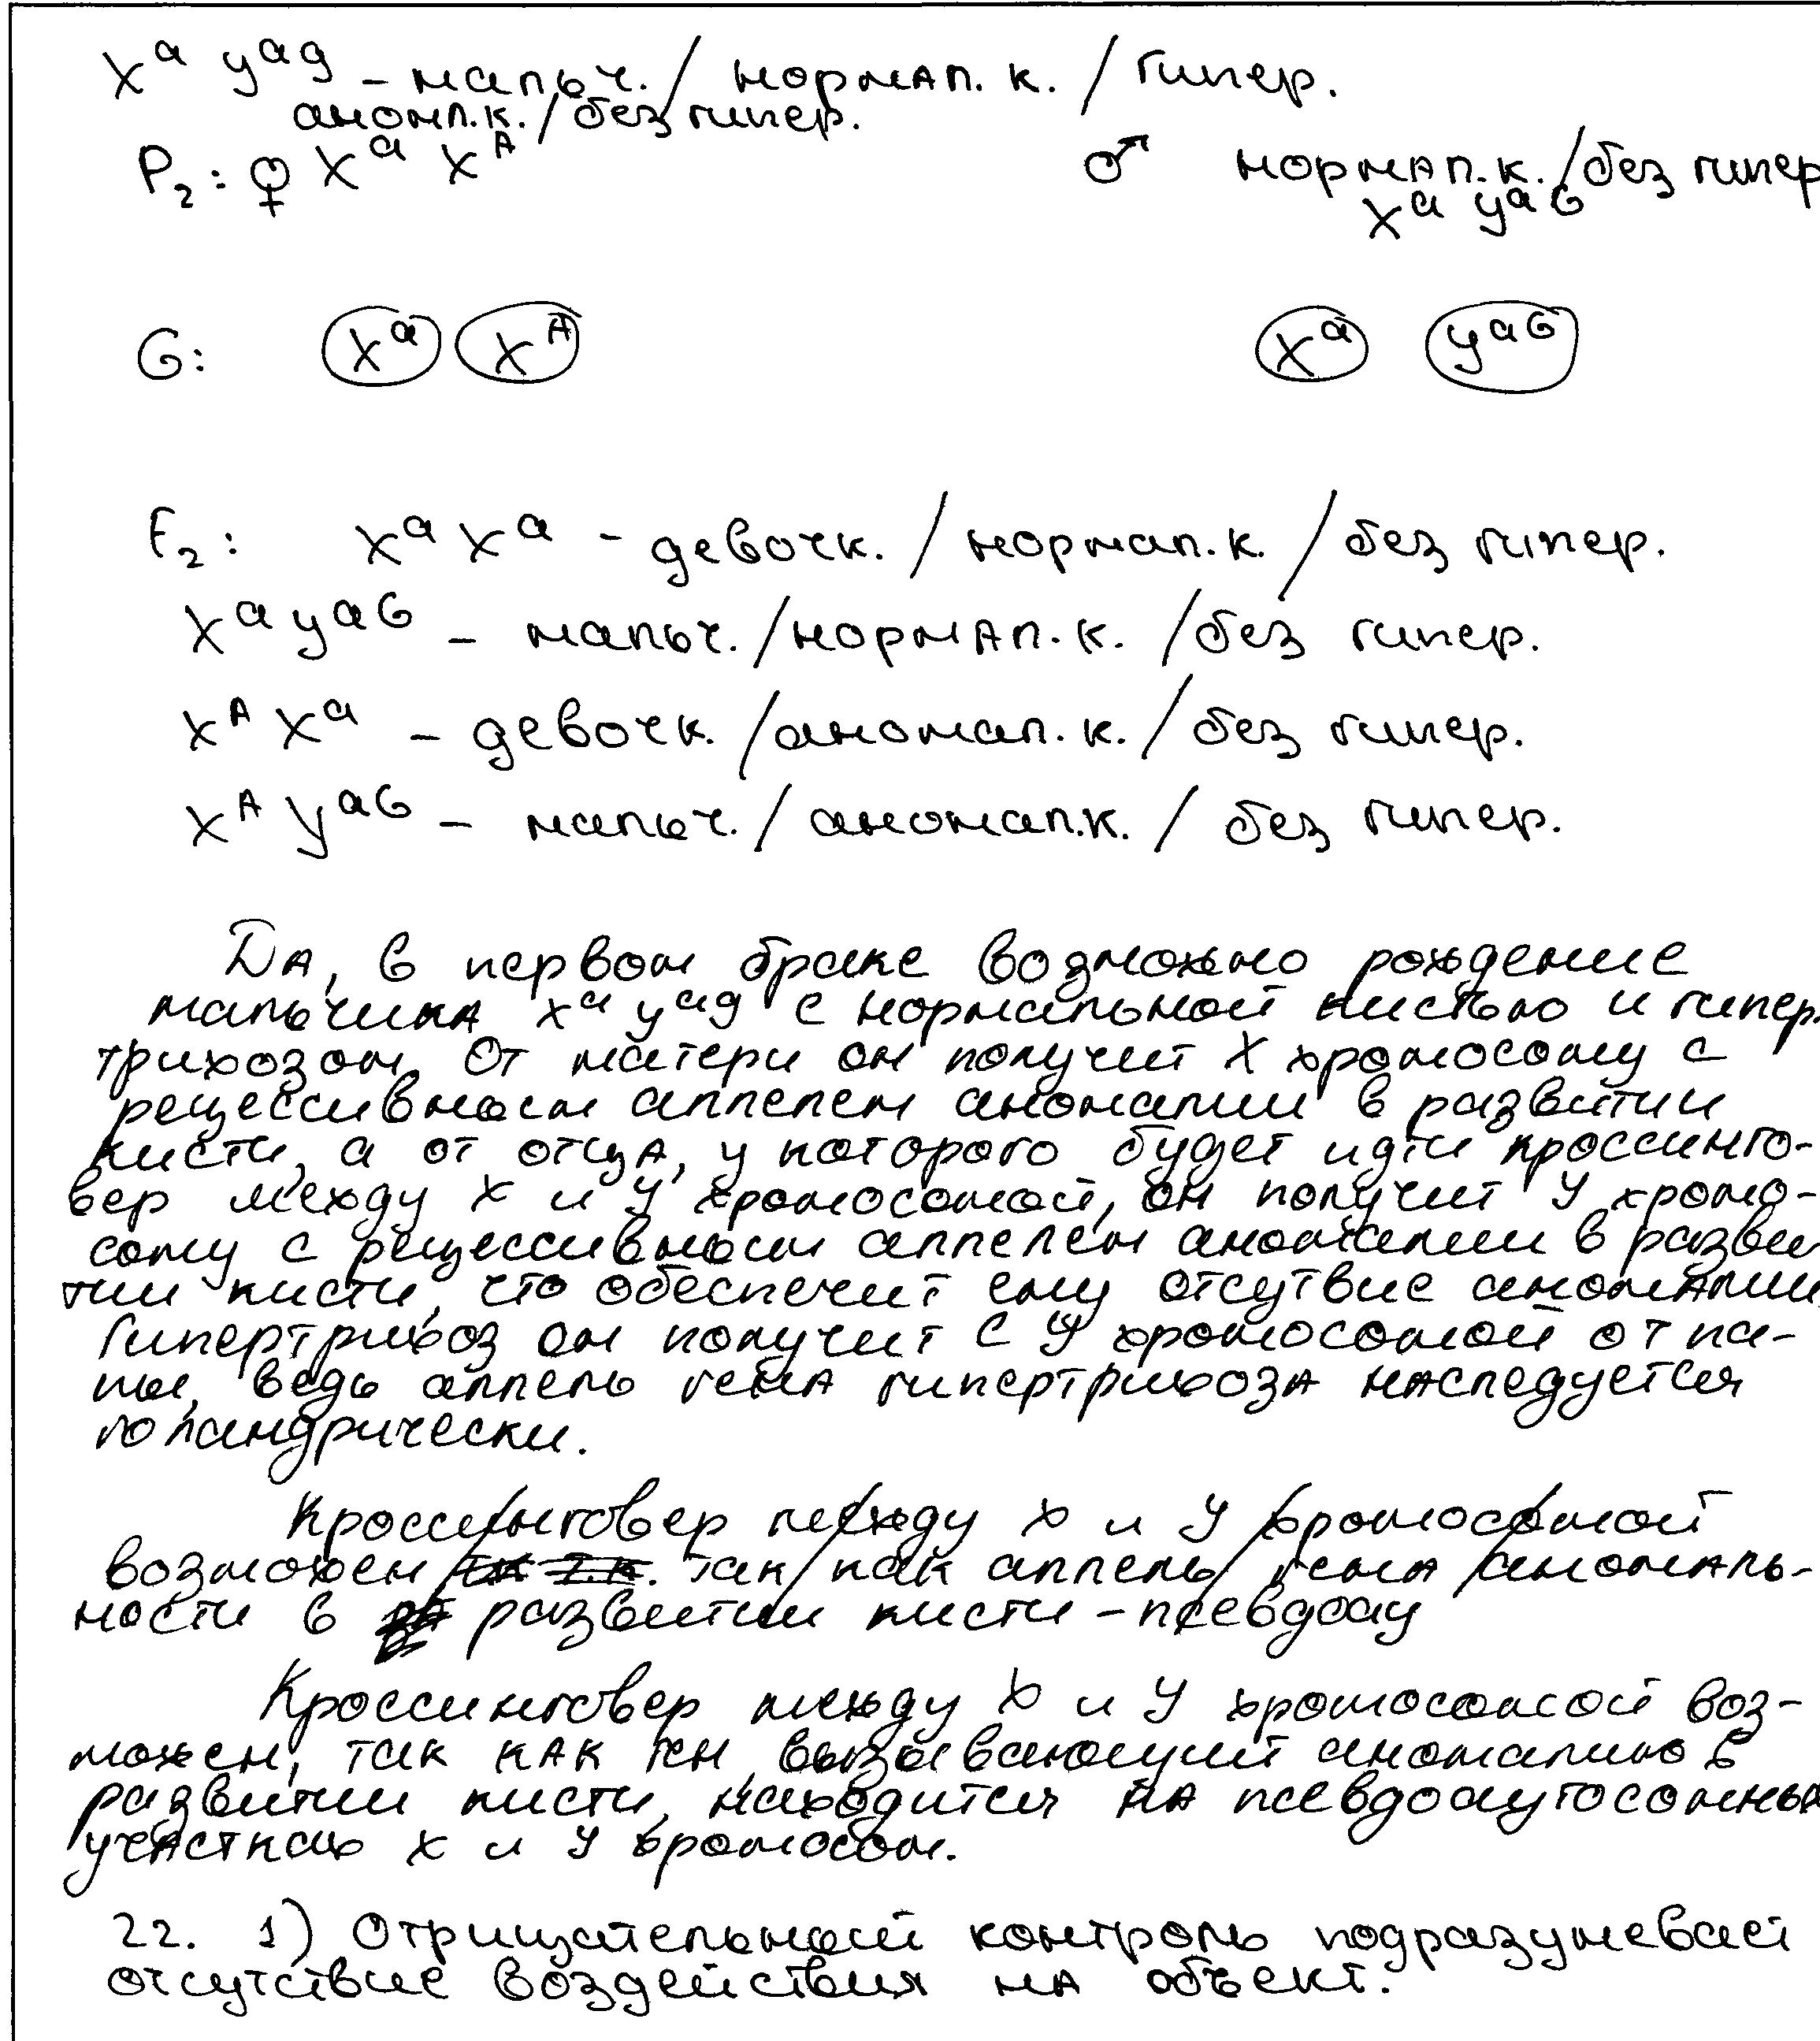 Xᵃ Yᵃᵍ – мальч. / нормал. к. / гипер.
аномл.к. / без гипер.
P₂: ♀ Xᵃ Xᴬ ♂ нормал.к. / без гипер
Xᵃ Yᵃᴳ
G: Xᵃ Xᴬ Xᵃ Yᵃᴳ
F₂: Xᵃ Xᵃ – девочк. / нормал.к. / без гипер.
Xᵃ Yᵃᴳ – мальч. / нормал.к. / без гипер.
Xᴬ Xᵃ – девочк. / аномал.к. / без гипер.
Xᴬ Yᵃᴳ – мальч. / аномал.к. / без гипер.
Да, в первом браке возможно рождение
мальчика Xᵃ Yᵃᵍ с нормальной кистью и гипер.
трихозом. От матери он получит X хромосому с
рецессивным аллелем аномалии в развитии
кисти, а от отца, у которого будет идти кроссинго-
вер между X и Y хромосомой, он получит Y хромо-
сому с рецессивным аллелем аномалии в разви
тии кисти, что обеспечит ему отсутвие аномалии.
Гипертрихоз он получит с Y хромосомой от па-
пы, ведь аллель гена гипертрихоза наследуется
голандрически.
Кроссинговер между X и Y хромосомой
возможен так как аллель гена аномаль-
ности в развитии кисти – псевдоау
Кроссинговер между X и Y хромосомой воз-
можен, так как ген, вызывающий аномалию в
развитии кисти, находится на псевдоаутосомны
участках X и Y хромосом.
22. 1) Отрицательный контроль подразумевает
отсутствие воздействия на объект.